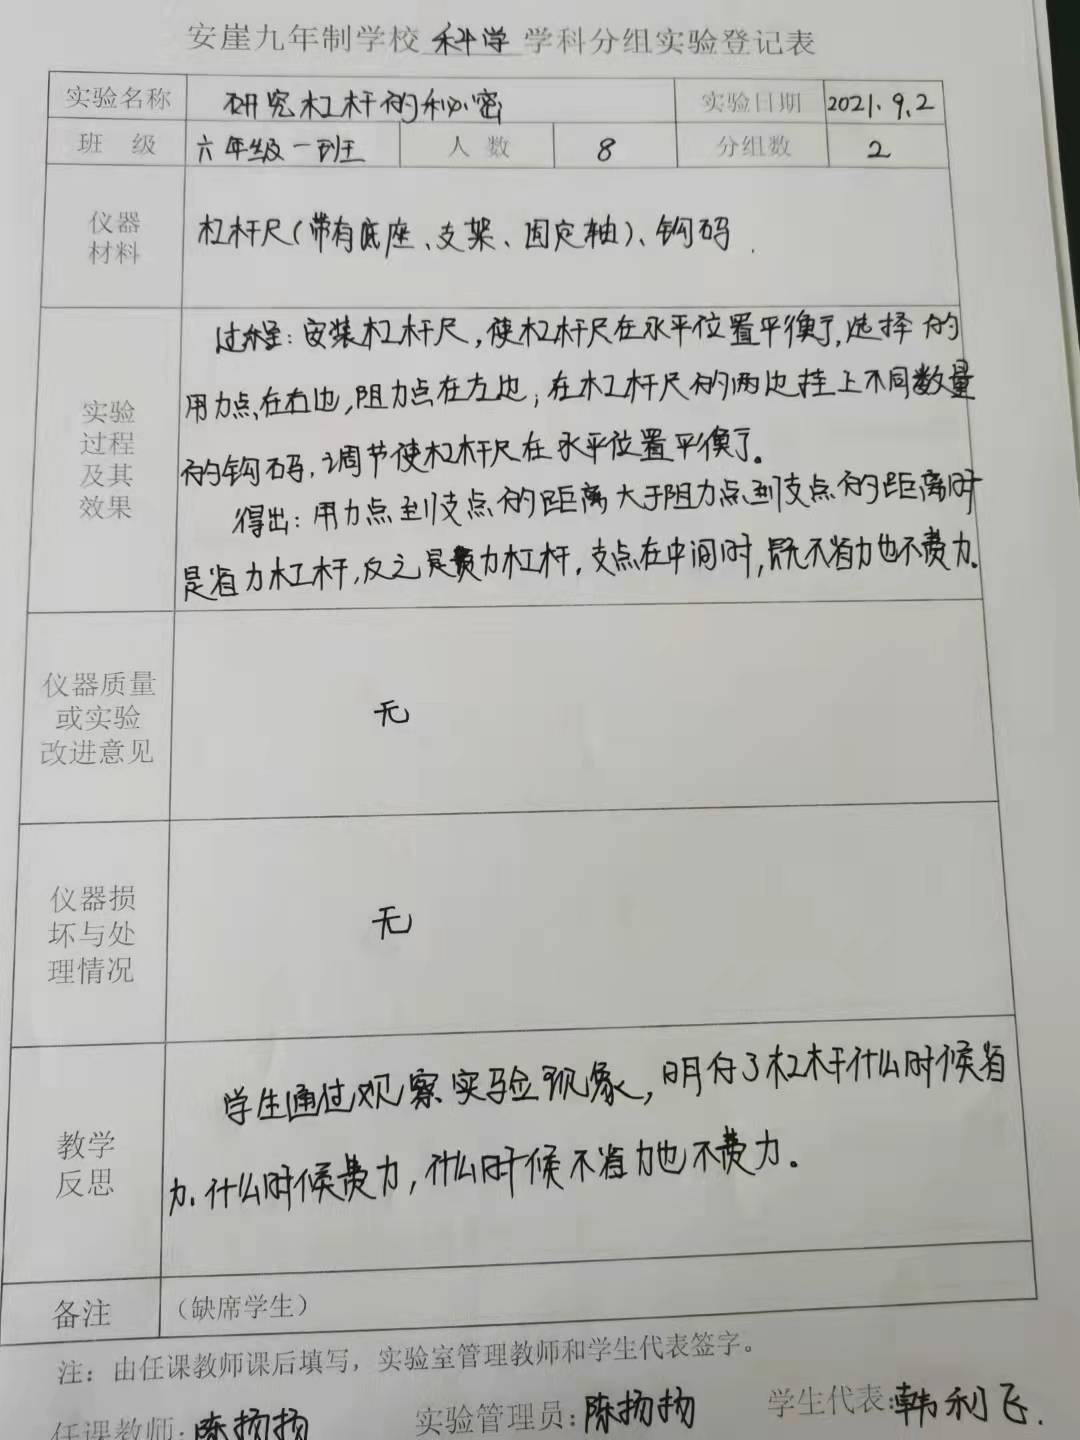 安崖九年制学校 科学 学科分组实验登记表
实验名称 研究杠杆的秘密 实验日期 2021.9.2
班 级 六年级一班 人 数 8 分组数 2
仪器
材料
杠杆尺(带有底座、支架、固定轴)、钩码.
实验
过程
及其
效果
过程:安装杠杆尺,使杠杆尺在水平位置平衡了,选择的
用力点在右边,阻力点在左边,在杠杆尺的两边挂上不同数量
的钩码,调节使杠杆尺在水平位置平衡了。
得出:用力点到支点的距离大于阻力点到支点的距离时
是省力杠杆,反之是费力杠杆,支点在中间时,既不省力也不费力。
仪器质量
或实验
改进意见
无
仪器损
坏与处
理情况
无
教学
反思
学生通过观察实验现象,明白了杠杆什么时候省
力.什么时候费力,什么时候不省力也不费力。
备注 (缺席学生)
注:由任课教师课后填写,实验室管理教师和学生代表签字。
任课教师:陈扬扬 实验管理员:陈扬扬 学生代表:韩利飞.